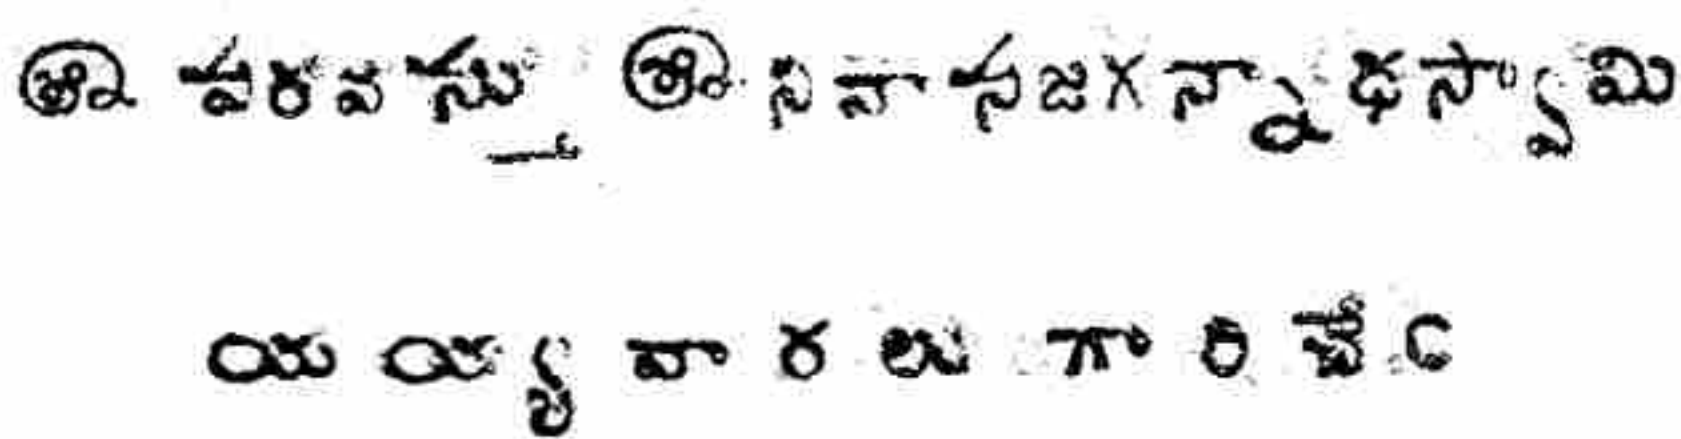 శ్రీ పరవస్తు శ్రీనివాసజగన్నాథస్వామి
యయ్యవారలుగారిచేఁ